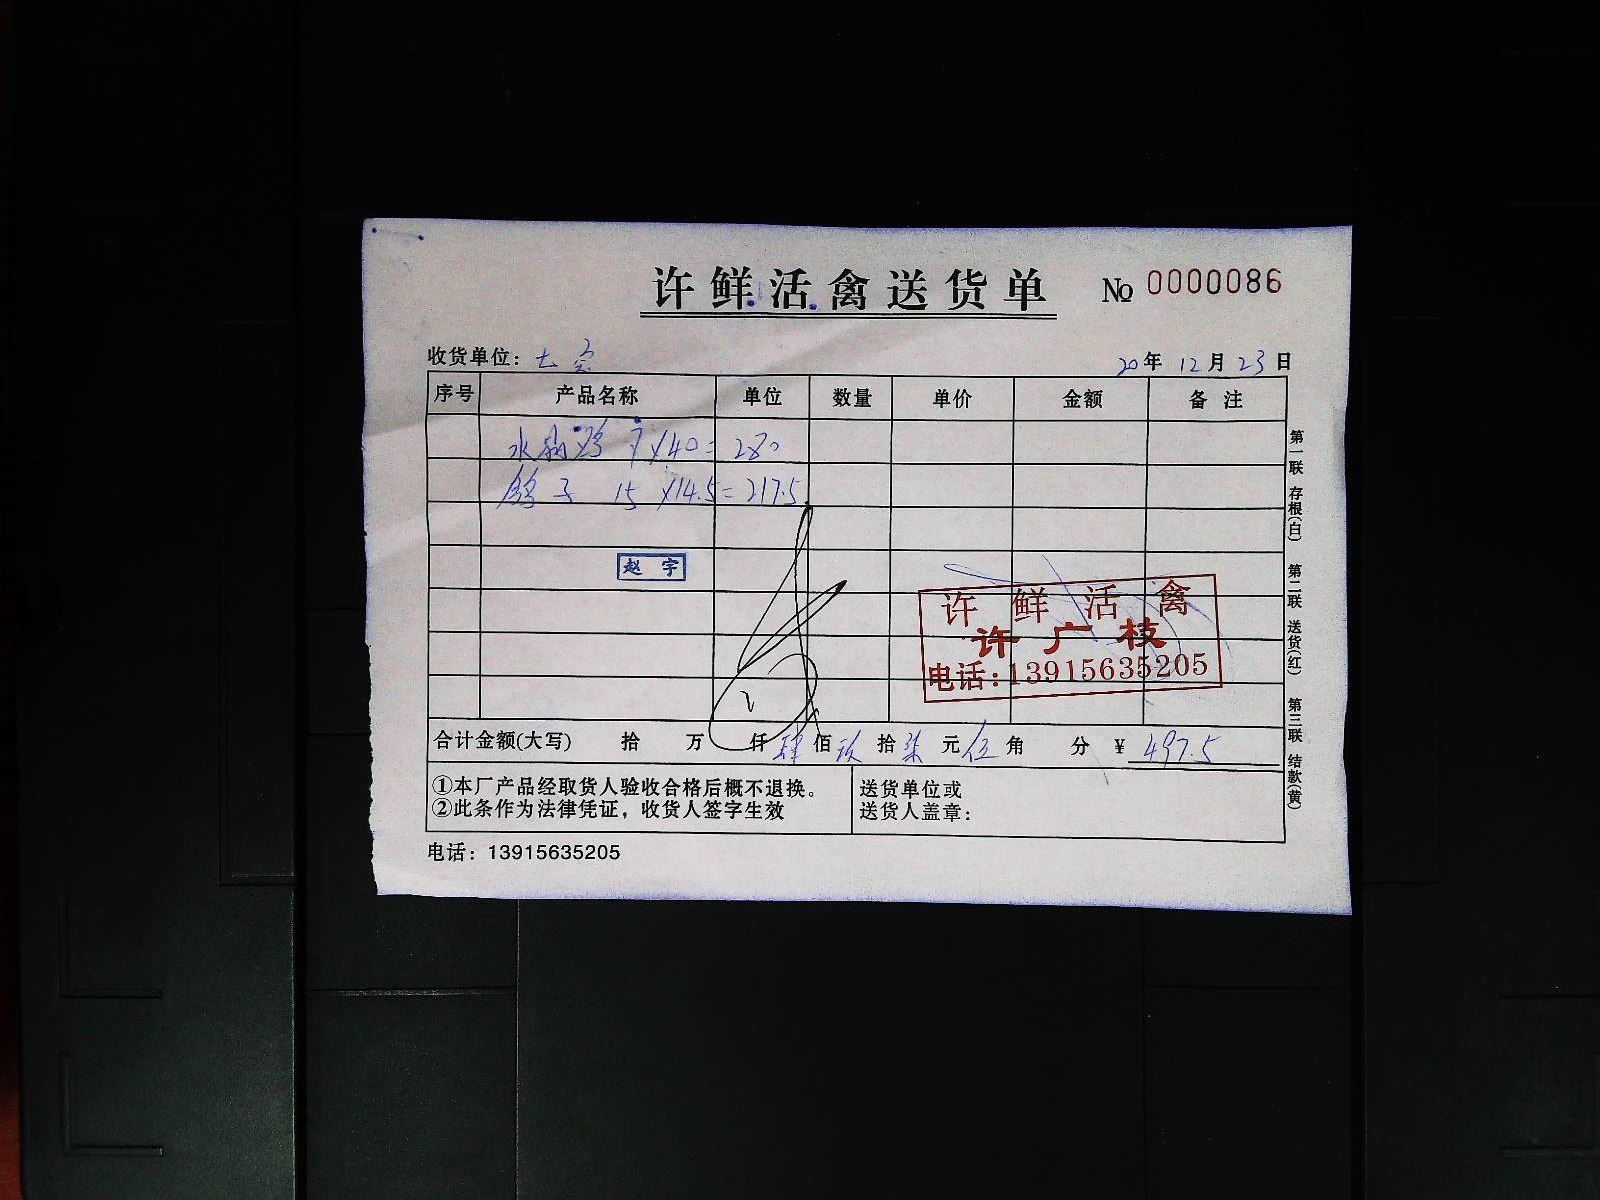 许鲜活禽送货单 № 0000086
收货单位： 20年 12月 23日
序号 产品名称 单位 数量 单价 金额 备注
水 鸡 7×40=280
鸽子 15×14.5=217.5
赵宇
许鲜活禽
许广枝
电话:13915635205
合计金额(大写) 拾 万 仟 肆佰 玖拾 柒元 伍角 分 ￥ 497.5
①本厂产品经取货人验收合格后概不退换。
②此条作为法律凭证，收货人签字生效
送货单位或
送货人盖章：
电话：13915635205
第一联 存根(白) 第二联 送货(红) 第三联 结款(黄)